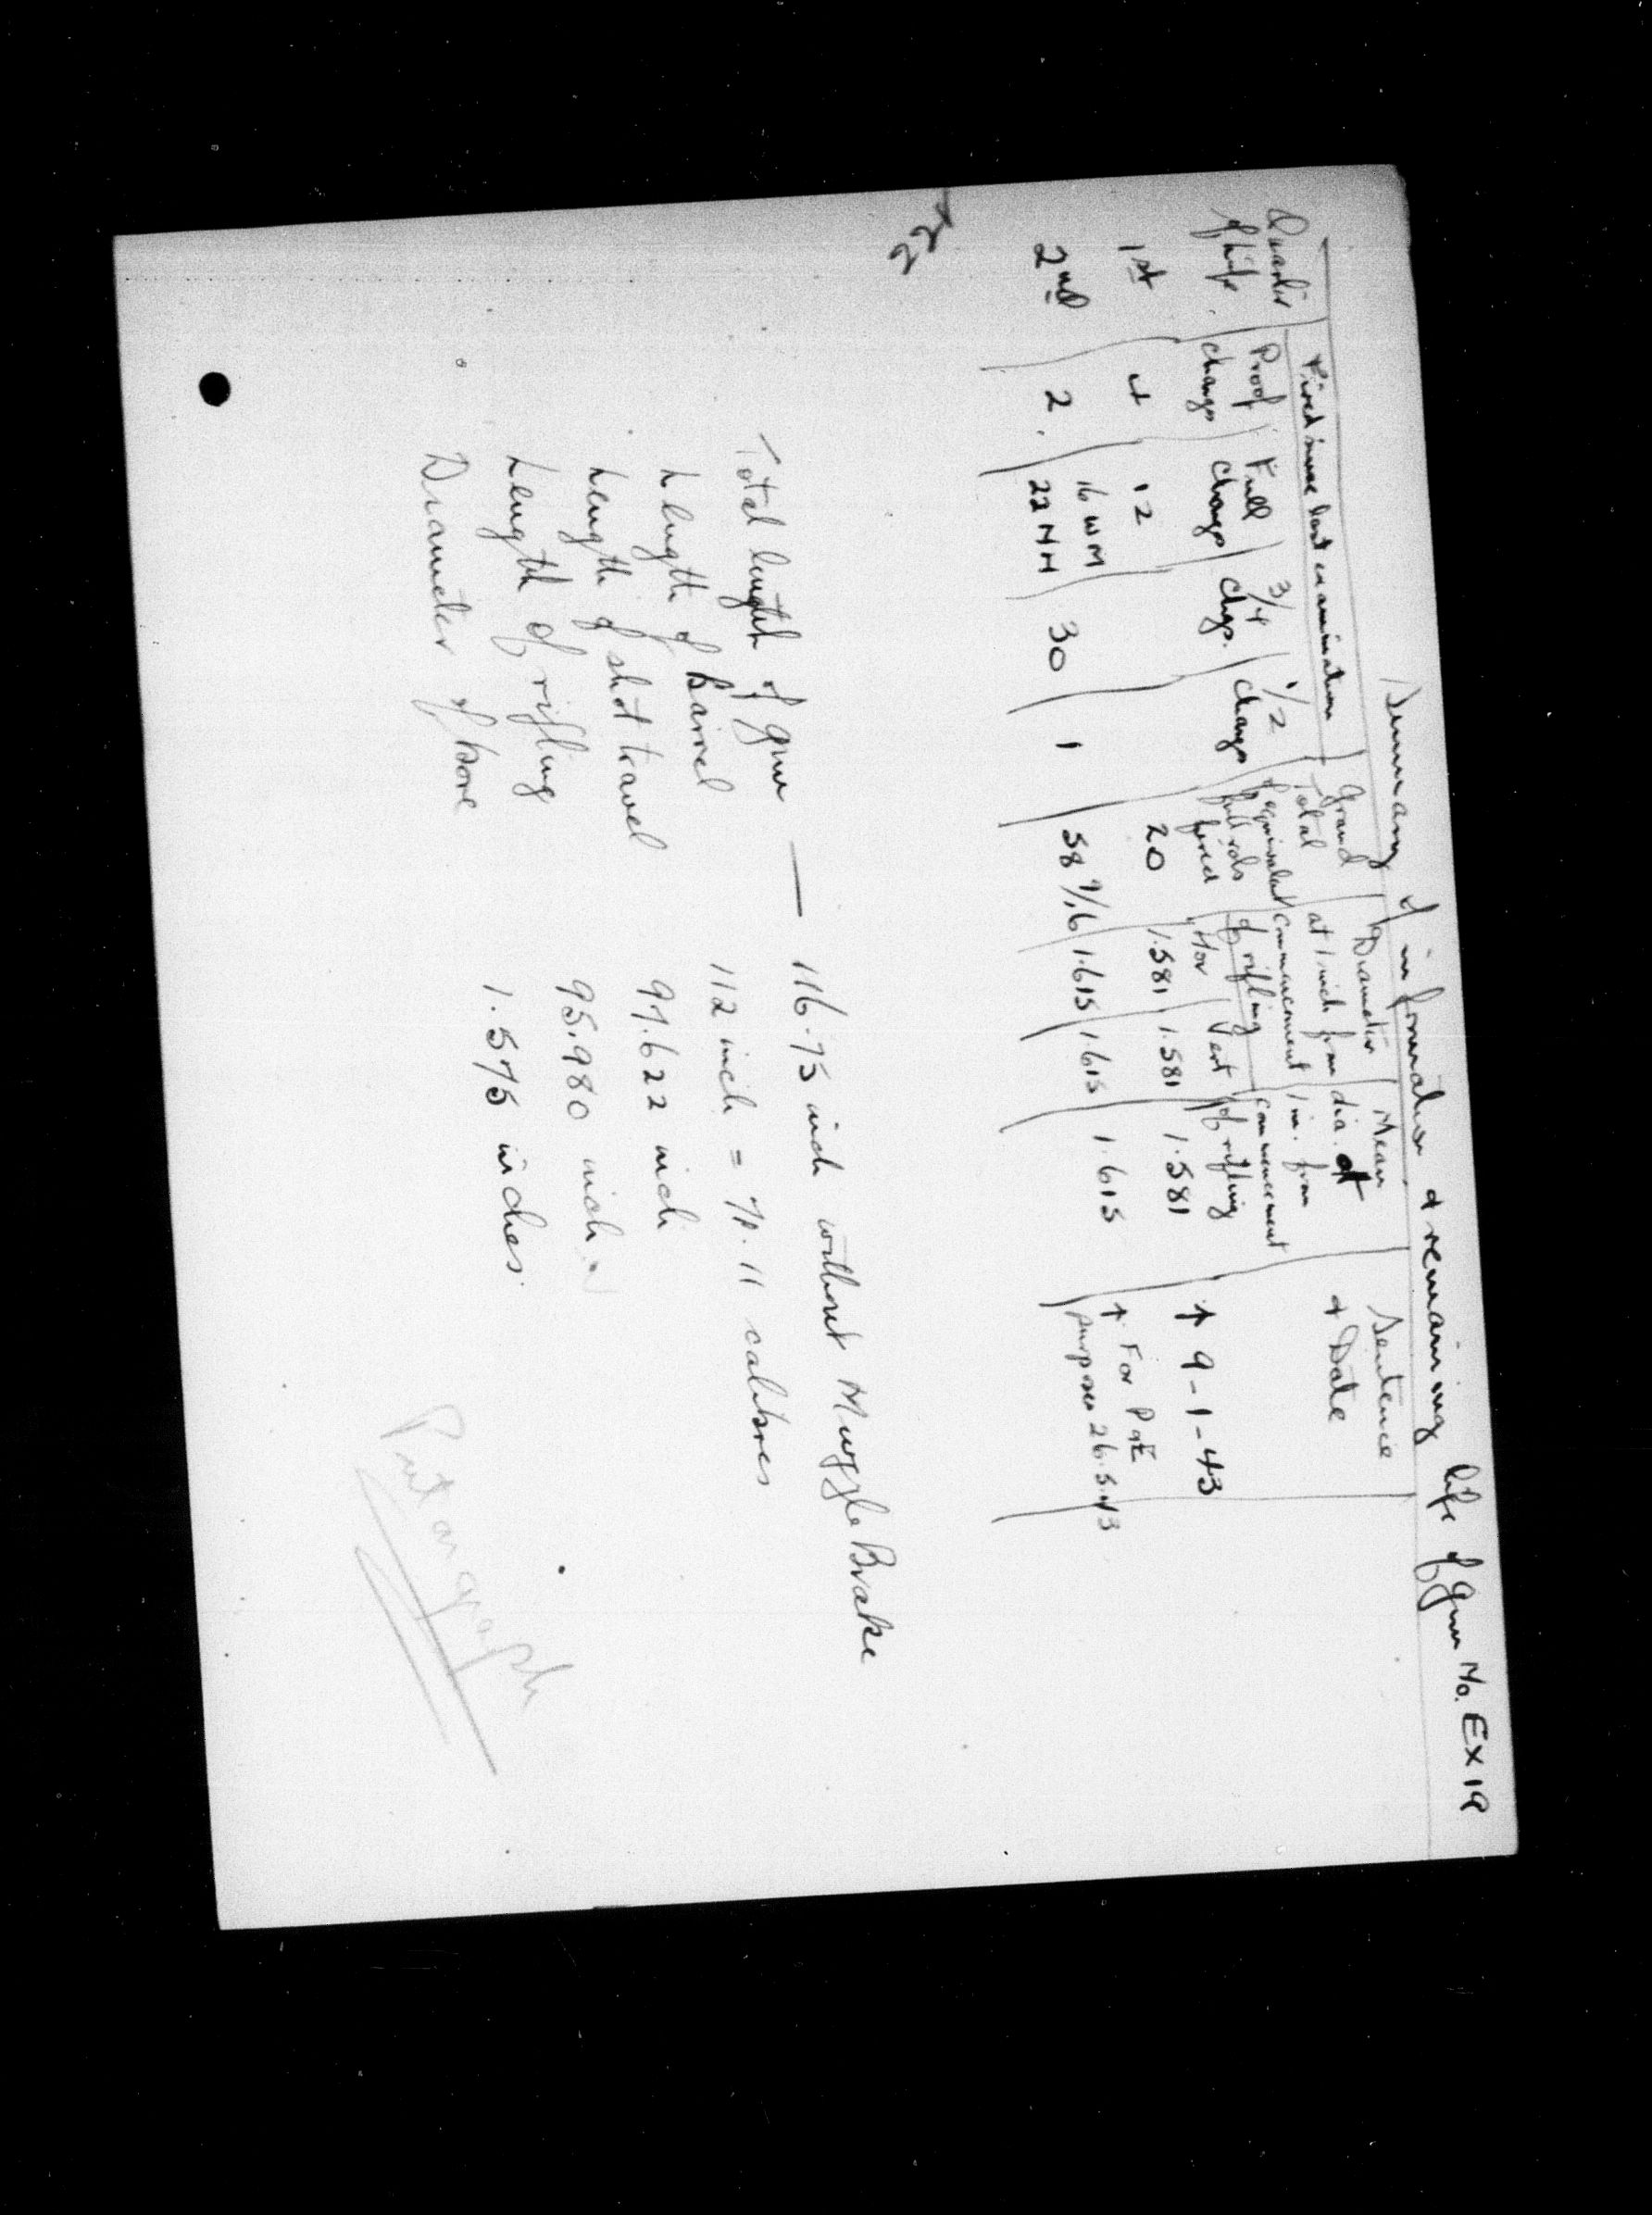 Summary of information & remaining life of Gun No. EX 19
Quarter of life
Fired since last examination
Proof charges
Full charges
3/4 chgs.
1/2 charges
Grand Total of equivalent full rds fired
Diameter at 1 inch from commencement of rifling
Hor
Vert
Mean dia. at 1 in. from commencement of rifling
Sentence & Date
1st 4 12 20 1.581 1.581 1.581 ↑ 9-1-43
2nd 2 16 WM 22 NH 30 1 58 9/16 1.615 1.615 1.615 ↑ For P & E purposes 26.5.43
22
Total length of gun — 116.75 inch without Muzzle Brake
Length of Barrel 112 inch = 71.11 calibres
Length of shot travel 97.622 inch
Length of rifling 95.980 inch
Diameter of bore 1.575 inches.
Put on graph